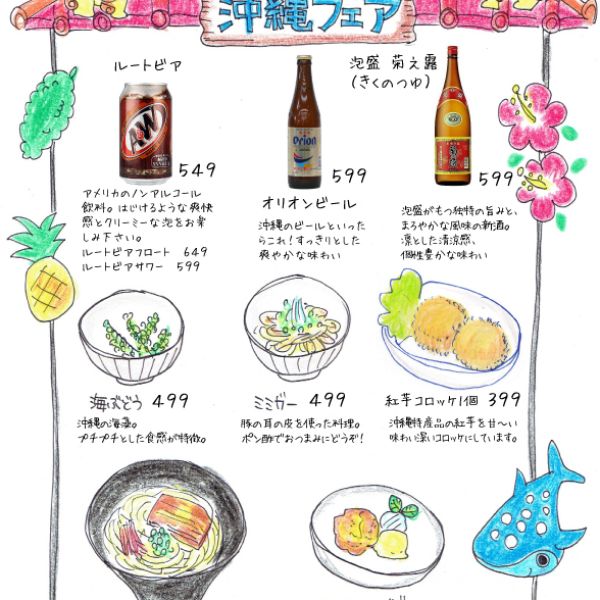 沖縄フェア
ルートビア
A&W
549
アメリカのノンアルコール
飲料。はじけるような爽快
感とクリーミーな泡をお楽
しみ下さい。
ルートビアフロート 649
ルートビアサワー 599
Orion
599
オリオンビール
沖縄のビールといった
らこれ!すっきりとした
爽やかな味わい
泡盛 菊之露
(きくのつゆ)
599
泡盛がもつ独特の旨みと、
まろやかな風味の新酒。
凛とした清涼感、
個性豊かな味わい
海ぶどう 499
沖縄の海藻。
プチプチとした食感が特徴。
ミミガー 499
豚の耳の皮を使った料理。
ポン酢でおつまみにどうぞ!
紅芋コロッケ1個 399
沖縄特産品の紅芋を甘〜い
味わい深いコロッケにしています。